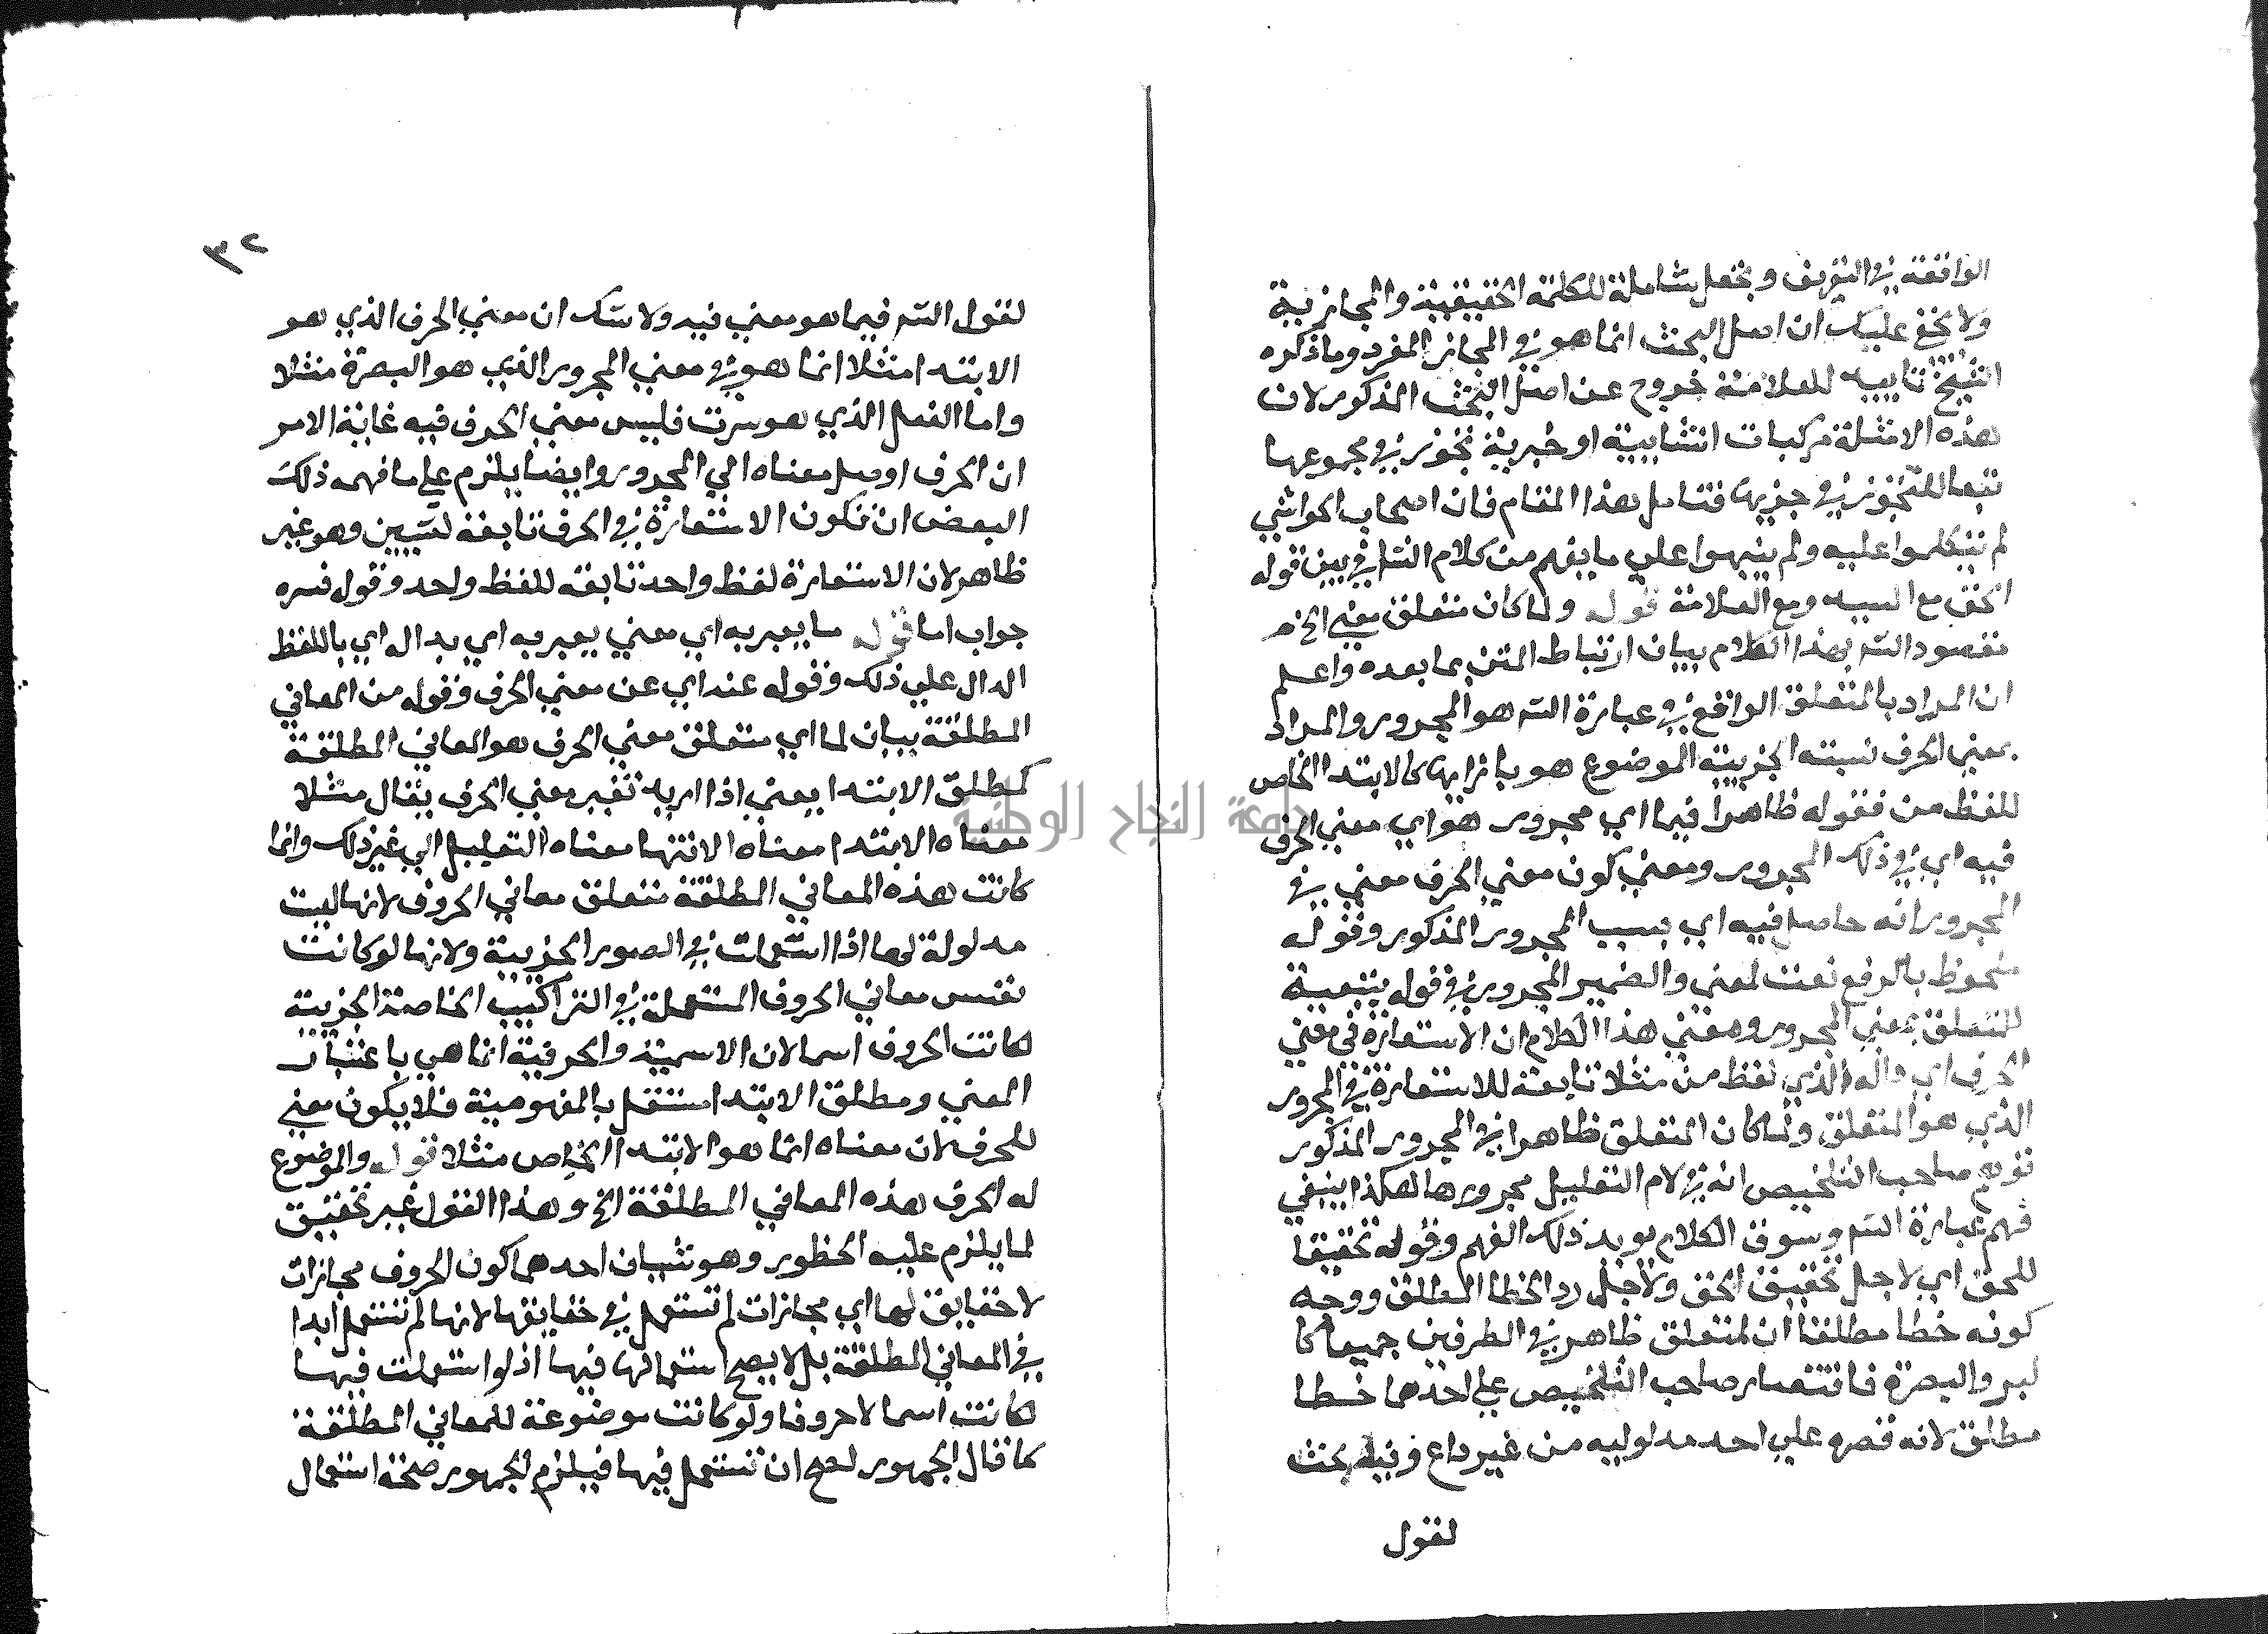 الواقعة في التعريف وتجعل شاملة للكلمة الحقيقية والمجازية
ولا يخفى عليك ان اصل البحث انما هو في المجاز المفرد وما ذكره
الشيخ تابيه للعلامة خروج عن اصل البحث المذكور لان
هذه الامثلة مركبات انشايية او خبرية تجوز في مجموعها
تبعا للتجوز في جزيها فتامل هذا المقام فان اصحاب الحواشي
لم يتكلموا عليه ولم ينبهوا على ما يفهم من كلام الشا في بين قوله
الحق مع السيد ومع العلامة قوله ولما كان متعلق معنى الخ
مقصود الشه بهذا الكلام بيان ارتباط المتن بما بعده واعلم
ان المراد بالمتعلق الواقع في عبارة الشه هو المجرور والمراد
بمعنى الحرف نسبته الجزيية الموضوع هو بازايها كالابتدا الخاص
للفظ من فقوله ظاهرا فيما اي مجرور هو اي معنى الحرف
فيه اي في ذلك المجرور ومعنى كون معنى الحرف معنى في
المجرور انه حاصل فيه اي بسبب المجرور المذكور وقوله
ملحوظ بالرفع نعت لمعنى والضمير المجرور في قوله بتبعية
للتعلق بمعنى المجرور ومعنى هذا الكلام ان الاستعارة في معنى
الحرف اي داله الذي لفظ من مثلا تابعة للاستعارة في المجرور
الذي هو المتعلق ولما كان المتعلق ظاهرا في المجرور المذكور
توهم صاحب التلخيص انه في لام التعليل مجرورها هكذا ينبغي
فهم عبارة الشه وسوق الكلام مويد ذلك الفهم وقوله تحقيقا
للحق اي لاجل تحقيق الحق ولاجل رد الخطا المطلق ووجه
كونه خطا مطلقا ان المتعلق ظاهر في الطرفين جميعا كا
لير والبصرة فاقتصار صاحب التلخيص على احدهما خطا
مطلق لانه قصره على احد مدلوليه من غير داع وفيه بحث
لقول
٣٢
لقول الشه فيما هو معنى فيه ولا شك ان معنى الحرف الذي هو
الابتدا مثلا انما هو في معنى المجرور الذي هو البصرة مثلا
واما الفعل الذي هو سرت فليس معنى الحرف فيه غاية الامر
ان الحرف اوصل معناه الى المجرور وايضا يلزم على ما فهمه ذلك
البعض ان تكون الاستعارة في الحرف تابعة لشيين وهو غير
ظاهر لان الاستعارة لفظ واحد تابعة للفظ واحد وقوله فسره
جواب اما قوله ما يعبر به اي معنى يعبر به اي بدال اي باللفظ
الدال على ذلك وقوله عنه اي عن معنى الحرف وقوله من المعاني
المطلقة بيان لما اي متعلق معنى الحرف هو المعاني المطلقة
كمطلق الابتدا يعني اذا اريد تفسير معنى الحرف يقال مثلا
معناه الابتدا معناه الانتها معناه التعليل الى غير ذلك وانما
كانت هذه المعاني المطلقة متعلق معاني الحروف لانها ليست
مدلولة لها اذا استعملت في الصور الجزيية ولانها لو كانت
نفس معاني الحروف المستعملة في التراكيب الخاصة الجزيية
لكانت الحروف اسما لان الاسمية والحرفية انما هي باعتبار
المعنى ومطلق الابتدا مستقل بالمفهومية فلا يكون معنى
للحرف لان معناه انما هو الابتدا الخاص مثلا قوله والموضوع
له الحرف هذه المعاني المطلقة الخ وهذا القول غير تحقيق
لما يلزم عليه المحظور وهو شييان احدهما كون الحروف مجازات
لا حقايق لها اي مجازات لم تستعمل في حقايقها لانها لم تستعمل ابدا
في المعاني المطلقة بل لا يصح استعمالها فيها اذ لو استعملت فيها
لكانت اسما لا حروفا ولو كانت موضوعة للمعاني المطلقة
كما قال الجمهور لصح ان تستعمل فيها فيلزم الجمهور صحة استعمال
جامعة النجاح الوطنية